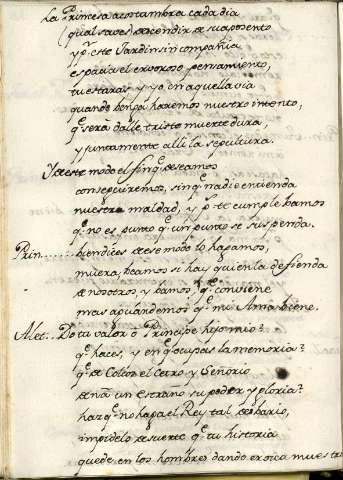 La Princesa acostumbra cada dia
(qual saves) descendir de su aposento
y pr. este Jardin sin compañia
espacia el pensamiento,
tu estaras y yo en aquella via
quando benga haremos nuestro intento,
q. será dalle triste muerte dura,
y juntamente alli la sepultura.
Y deste modo el fin q. deseamos
conseguiremos, sin q. nadie entienda
nuestra maldad, y pr. te cumple bamos
q. no es punto q. un punto se suspenda.
Prin...... bien dices de ese modo lo hagamos,
muera, beamos si hay quien la defienda
de nosotros, y bamos, q. conviene
mas aguardemos q. mi Ama biene.
Alet... Do tu valor o Principe
q. haces, y en q. ocupas la memoria?
q. de Colcos el cetro, y Señorio
a un estraño su poder y gloria?
haz q. no haga el Rey tal
impidelo de suerte q. tu historia
quede en los hombres dando eroica muestra